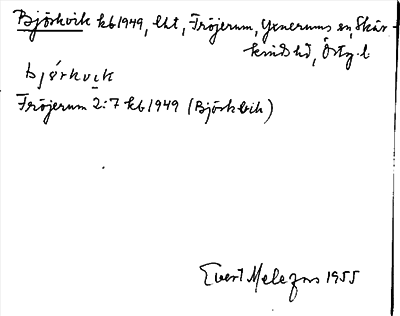 Björkvik kb 1949, lht, Fröjerum, Yxnerums sn, Skär-
kinds hd, Östg. l
bjö́rkvik
Fröjerum 2:7 kb 1949 (Björkvik)
Evert Melefors 1955